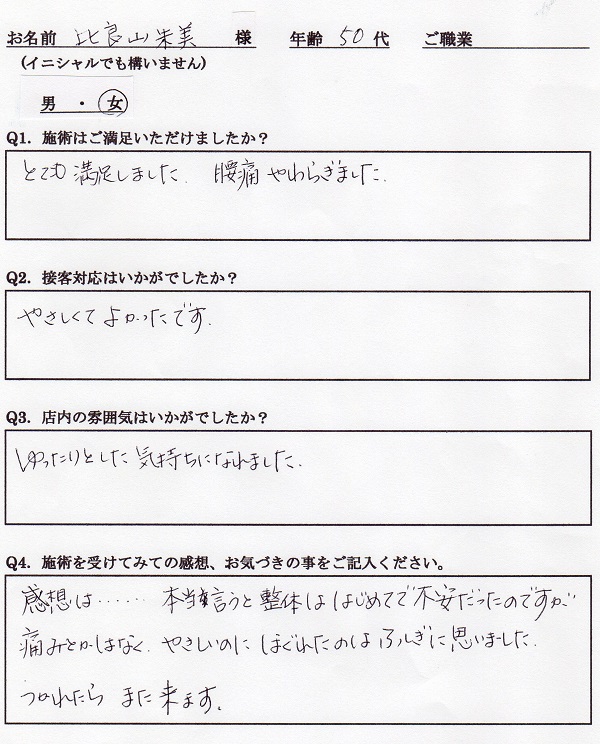 お名前 比良山朱美 様 年齢 50代 ご職業
(イニシャルでも構いません)
男 ・ 女
Q1. 施術はご満足いただけましたか？
とても満足しました. 腰痛やわらぎました.
Q2. 接客対応はいかがでしたか？
やさしくてよかったです.
Q3. 店内の雰囲気はいかがでしたか？
ゆったりとした気持ちになれました.
Q4. 施術を受けてみての感想、お気づきの事をご記入ください。
感想は…… 本当言うと整体ははじめてで不安だったのですが
痛みとかはなく、やさしいのにほぐれたのはふしぎに思いました.
つかれたら また来ます。